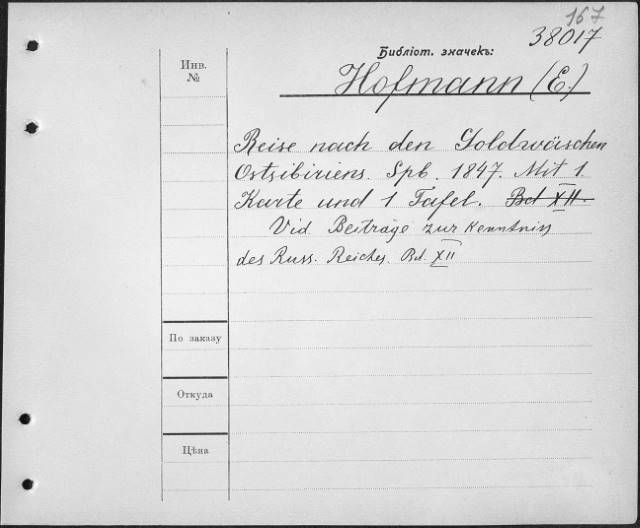 167
38017
Библіот. значекъ:
Инв.
№
Hofmann (E.)
Reise nach den Goldwäschen
Ostsibiriens. Spb. 1847. Mit 1
Karte und 1 Tafel. Bd XII.
Vid Beiträge zur Kenntniss
des Russ. Reiches. Bd. XII
По заказу
Откуда
Цѣна